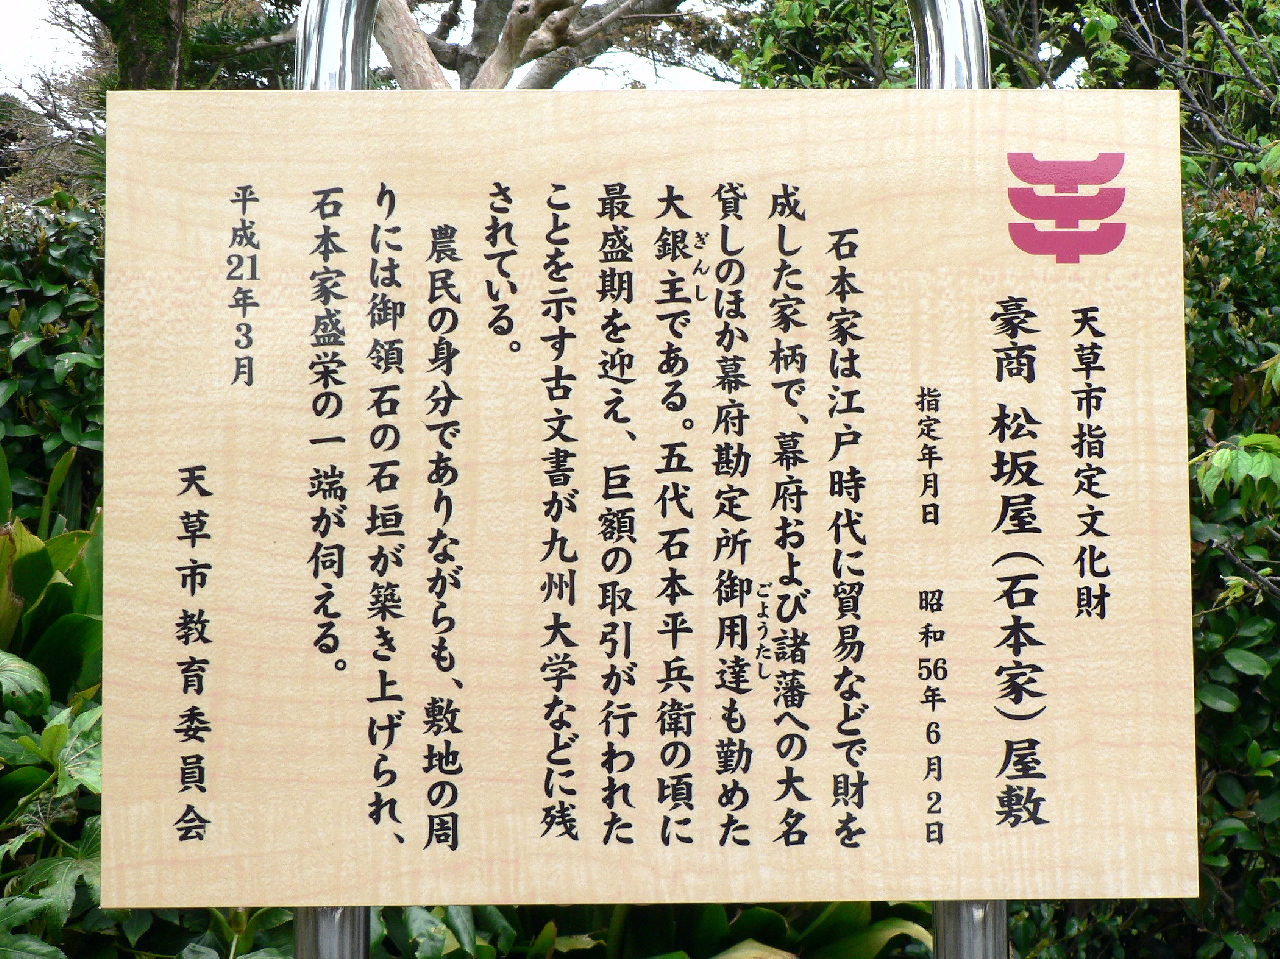 天草市指定文化財
豪商 松坂屋（石本家）屋敷
指定年月日 昭和56年6月2日
石本家は江戸時代に貿易などで財を
成した家柄で、幕府および諸藩への大名
貸しのほか幕府勘定所御用達も勤めた
ごようたし
大銀主である。五代石本平兵衛の頃に
ぎんし
最盛期を迎え、巨額の取引が行われた
ことを示す古文書が九州大学などに残
されている。
農民の身分でありながらも、敷地の周
りには御領石の石垣が築き上げられ、
石本家盛栄の一端が伺える。
平成21年3月
天草市教育委員会